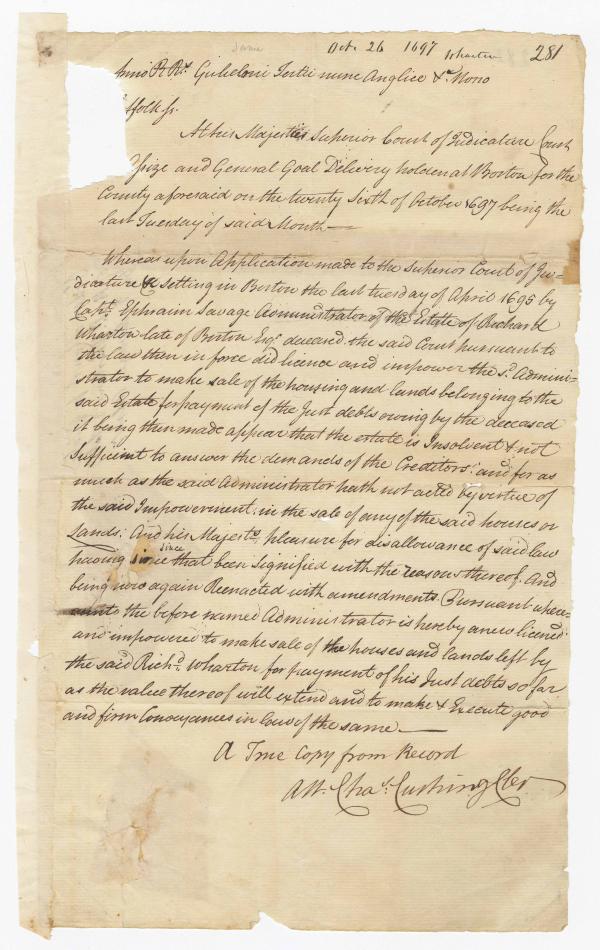 Octr 26 1697 Wharton 281
Anno R Rs Gulielmi Tertii nunc Anglice &c Nono
ffolk ss.
At his Majesties Superior Court of Judicature Court
Assize and General Goal Delivery holden at Boston for the
County aforesaid on the twenty Sixth of October 1697 being the
last Tuesday of said Month —
Whereas upon Application made to the Superior Court of Ju-
dicature setting in Boston the last tuesday of April 1695 by
Capt. Ephraim Savage Administrator of the Estate of Richard
Wharton late of Boston Esq. deceased. the said Court pursuant to
the law then in force did licence and impower the sd. Admini-
strator to make sale of the housing and lands belonging to the
said Estate for payment of the Just debts owing by the deceased
it being then made appear that the estate is Insolvent & not
Sufficient to answer the demands of the Creditors: and for as
much as the said Administrator hath not acted by virtue of
the said Impowerment, in the sale of any of the said houses or
Lands: And his Majesties pleasure for disallowance of said law
having since that been signified with the reasons thereof. And
being now again Reenacted with amendments. Pursuant where-
unto the before named Administrator is hereby anew licenced
and impowered to make sale of the houses and lands left by
the said Richd. Wharton for payment of his Just debts so far
as the value thereof will extend and to make & Execute good
and firm Conveyances in law of the same —
A True Copy from Record
Att. Chas. Cushing Cler